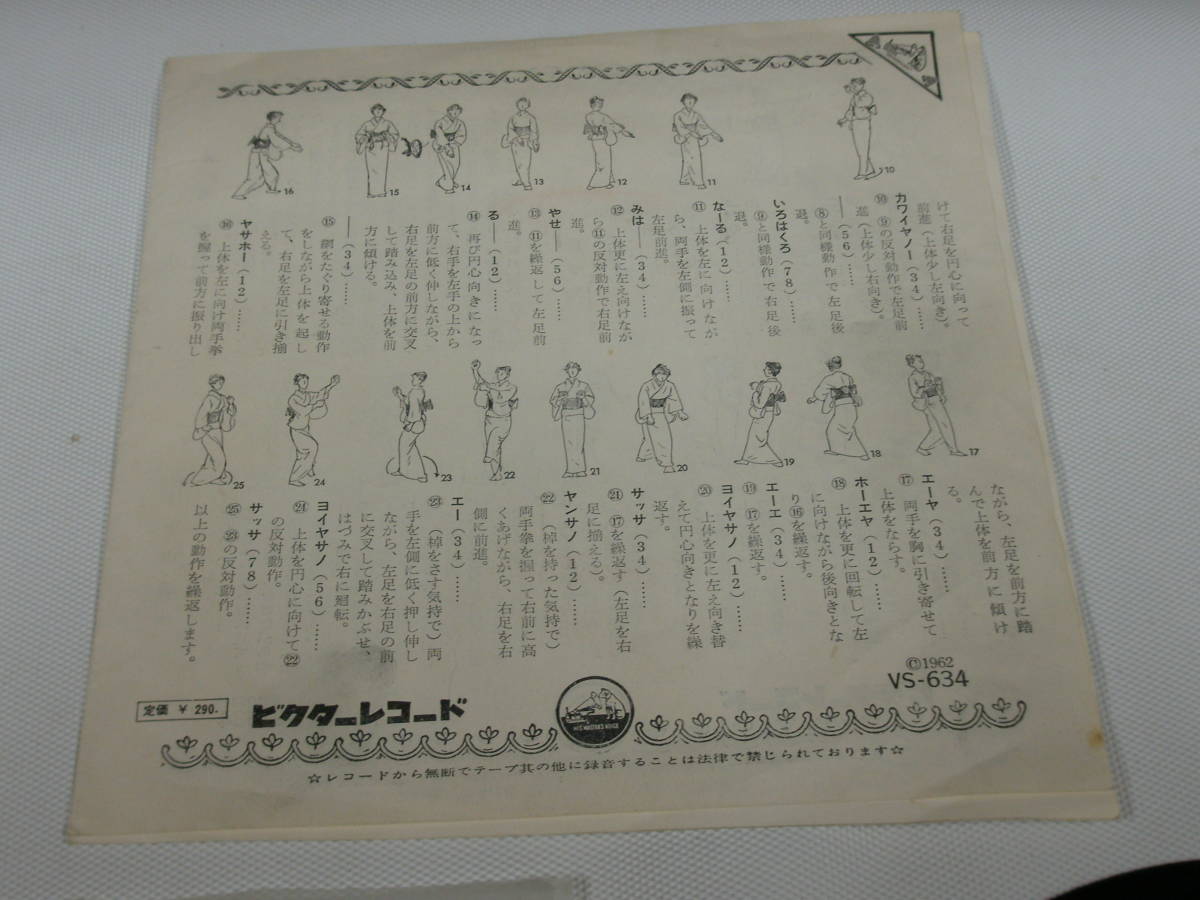 けて右足を円心に向って
前進(上体少し左向き)。
カワイヤノー(34)……
⑩ ⑨の反対動作で左足前
進(上体少し右向き)。
――(56)……
⑧と同様動作で左足後
退。
いろはくろ(78)……
⑨と同様動作で右足後
退。
なーる(12)……
⑪ 上体を左に向けなが
ら、両手を左側に振って
左足前進。
みは――(34)……
⑫ 上体更に左え向けなが
ら⑪の反対動作で右足前
進。
やせ――(56)……
⑬ ⑪を繰返して左足前
進。
る――(12)……
⑭ 再び円心向きになっ
て、右手を左手の上から
前方に低く伸しながら、
右足を左足の前方に交叉
して踏み込み、上体を前
方に傾ける。
――(34)……
⑮ 網をたぐり寄せる動作
をしながら上体を起し
て、右足を左足に引き揃
える。
ヤサホー(12)……
⑯ 上体を左に向け両手拳
を握って前方に振り出し
10
11
12
13
14
15
16
ながら、左足を前方に踏
んで上体を前方に傾け
る。
エーヤ(34)……
⑰ 両手を胸に引き寄せて
上体をならす。
ホーエヤ(12)……
⑱ 上体を更に回転して左
に向けながら後向きとな
り⑯を繰返す。
エーエ(34)……
⑲ ⑰を繰返す。
ヨイヤサノ(12)……
⑳ 上体を更に左え向き替
えて円心向きとなりを繰
返す。
サッサ(34)……
㉑ ⑰を繰返す(左足を右
足に揃える)。
ヤンサノ(12)……
㉒ (棹を持った気持で)
両手拳を握って右前に高
くあげながら、右足を右
側に前進。
エー(34)……
㉓ (棹をさす気持で)両
手を左側に低く押し伸し
ながら、左足を右足の前
に交叉して踏みかぶせ、
はづみで右に廻転。
ヨイヤサノ(56)……
㉔ 上体を円心に向けて㉒
の反対動作。
サッサ(78)……
㉕ ㉓の反対動作。
以上の動作を繰返します。
17
18
19
20
21
22
23
24
25
©1962
VS-634
定価 ¥ 290.
ビクターレコード
HIS MASTER'S VOICE
☆レコードから無断でテープ其の他に録音することは法律で禁じられております☆